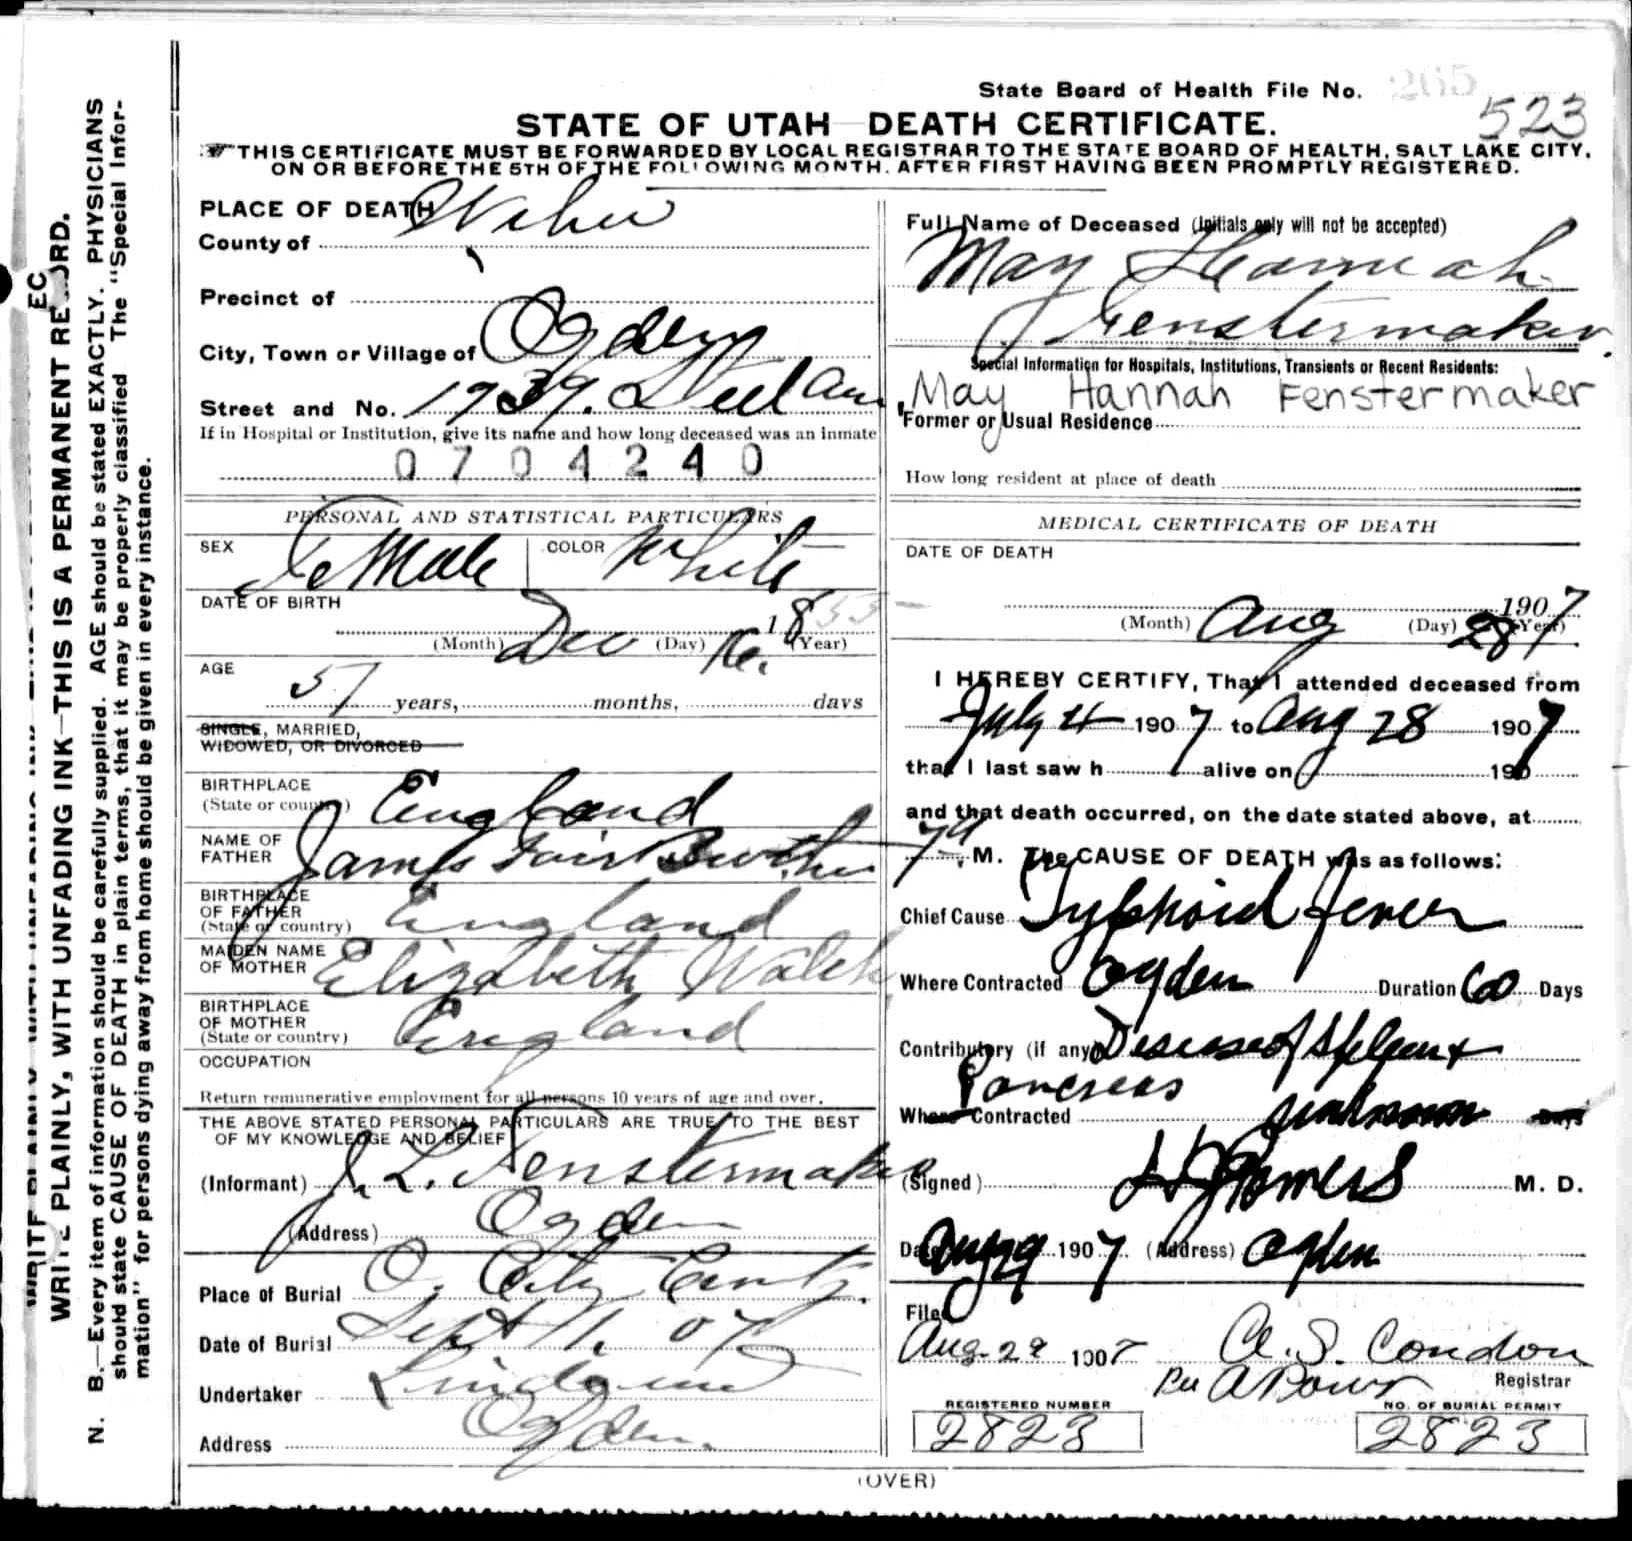 State Board of Health File No. 265
523
STATE OF UTAH DEATH CERTIFICATE.
THIS CERTIFICATE MUST BE FORWARDED BY LOCAL REGISTRAR TO THE STATE BOARD OF HEALTH, SALT LAKE CITY,
ON OR BEFORE THE 5TH OF THE FOLLOWING MONTH. AFTER FIRST HAVING BEEN PROMPTLY REGISTERED.
WRITE PLAINLY, WITH UNFADING INK—THIS IS A PERMANENT RECORD.
N. B.—Every item of information should be carefully supplied. AGE should be stated EXACTLY. PHYSICIANS
should state CAUSE OF DEATH in plain terms, that it may be properly classified The "Special Infor-
mation" for persons dying away from home should be given in every instance.
PLACE OF DEATH
County of Weber
Precinct of
City, Town or Village of Ogden
Street and No. 1739.
If in Hospital or Institution, give its name and how long deceased was an inmate
0704240
PERSONAL AND STATISTICAL PARTICULARS
SEX Female COLOR White
DATE OF BIRTH
(Month) Dec (Day) 16. 1853 (Year)
AGE
51 years, months, days
SINGLE, MARRIED,
WIDOWED, OR DIVORCED
BIRTHPLACE
(State or country) England
NAME OF
FATHER James
BIRTHPLACE
OF FATHER
(State or country) England
MAIDEN NAME
OF MOTHER Elizabeth
BIRTHPLACE
OF MOTHER
(State or country) England
OCCUPATION
Return remunerative employment for all persons 10 years of age and over.
THE ABOVE STATED PERSONAL PARTICULARS ARE TRUE TO THE BEST
OF MY KNOWLEDGE AND BELIEF
(Informant) J. L. Fenstermaker
(Address) Ogden
Place of Burial O. City Cemty.
Date of Burial Sept 1. 07
Undertaker Lindquist
Address Ogden.
Full Name of Deceased (Initials only will not be accepted)
May Hannah
Fenstermaker.
Special Information for Hospitals, Institutions, Transients or Recent Residents:
May Hannah Fenstermaker
Former or Usual Residence
How long resident at place of death
MEDICAL CERTIFICATE OF DEATH
DATE OF DEATH
1907
(Month) Aug (Day) 28 (Year)
I HEREBY CERTIFY, That I attended deceased from
July 4 1907 to Aug 28 1907
that I last saw h alive on 190
and that death occurred, on the date stated above, at
M. The CAUSE OF DEATH was as follows:
Chief Cause Typhoid fever
Where Contracted Ogden Duration 60 Days
Contributory (if any) Disease of Spleen &
Pancreas
Where Contracted unknown Days
(Signed) M. D.
Date Aug 29 1907 (Address) Ogden
Filed
Aug. 29 1907 A. S. Condon
Per Registrar
REGISTERED NUMBER
2823
NO. OF BURIAL PERMIT
2823
(OVER)